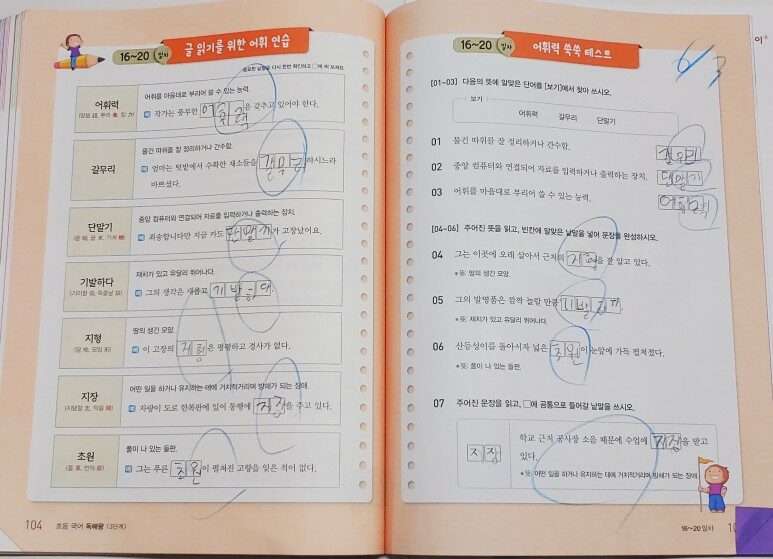 16~20 일차 글 읽기를 위한 어휘 연습
중요한 낱말을 다시 한번 확인하고 □에 써 보세요.
어휘력
어휘를 마음대로 부리어 쓸 수 있는 능력.
예 작가는 풍부한 어휘력을 갖추고 있어야 한다.
갈무리
물건 따위를 잘 정리하거나 간수함.
예 엄마는 텃밭에서 수확한 채소들을 갈무리하시느라
바쁘셨다.
단말기
중앙 컴퓨터와 연결되어 자료를 입력하거나 출력하는 장치.
예 죄송합니다만 지금 카드 단말기가 고장났어요.
기발하다
재치가 있고 유달리 뛰어나다.
예 그의 생각은 새롭고
지형
땅의 생긴 모양.
예 이 고장의 지형은 평평하고 경사가 없다.
지장
어떤 일을 하거나 유지하는 데에 거치적거리며 방해가 되는 장애.
예 차량이 도로 한복판에 있어 통행에 지장을 주고 있다.
초원
풀이 나 있는 들판.
예 그는 푸른 초원이 펼쳐진 고향을 잊은 적이 없다.
104 초등 국어 독해왕 (3단계)
16~20 일차 어휘력 쑥쑥 테스트
[01~03] 다음의 뜻에 알맞은 단어를 [보기]에서 찾아 쓰시오.
보기
어휘력 갈무리 단말기
01 물건 따위를 잘 정리하거나 간수함. 갈무리
02 중앙 컴퓨터와 연결되어 자료를 입력하거나 출력하는 장치. 단말기
03 어휘를 마음대로 부리어 쓸 수 있는 능력. 어휘력
[04~06] 주어진 뜻을 읽고, 빈칸에 알맞은 낱말을 넣어 문장을 완성하시오.
04 그는 이곳에 오래 살아서 근처의 지형을 잘 알고 있다.
*뜻: 땅의 생긴 모양.
05 그의 발명품은 깜짝 놀랄 만큼
*뜻: 재치가 있고 유달리 뛰어나다.
06 산등성이를 돌아서자 넓은 초원이 눈앞에 가득 펼쳐졌다.
*뜻: 풀이 나 있는 들판.
07 주어진 문장을 읽고, □에 공통으로 들어갈 낱말을 쓰시오.
지장
학교 근처 공사장 소음 때문에 수업에 지장을 받고
있다.
*뜻: 어떤 일을 하거나 유지하는 데에 거치적거리며 방해가 되는 장애.
16~20일차